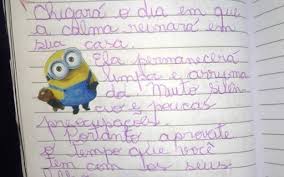 Chegará o dia em que
a calma reinará em
sua casa.
Ela permanecerá
limpa e arruma
da. Muito silên
cio e poucas
preocupações.
Portanto aproveite
o tempo que você
tem com os seus